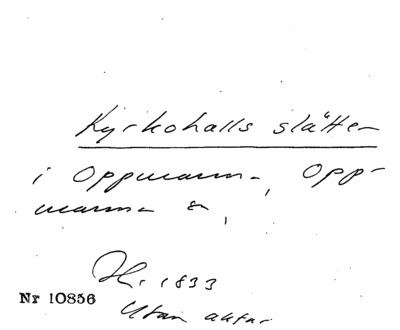 Kyrkohalls slätten
i Oppmanna, Opp-
manna sn,
H. 1833
Nr 10856
Utan aktnr